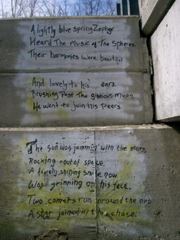 A lightly blue spring Zephyr
Heard The Music of The Spheres
Their harmonies were beautiful
And lovely to his ears
Rushing Past The glorious Moons
He went to join his Peers
The sun was jamming with the stars
Rocking out of space
A lively shining smile now
Was grinning on his face.
Two comets run around the
A star joined in the chase.